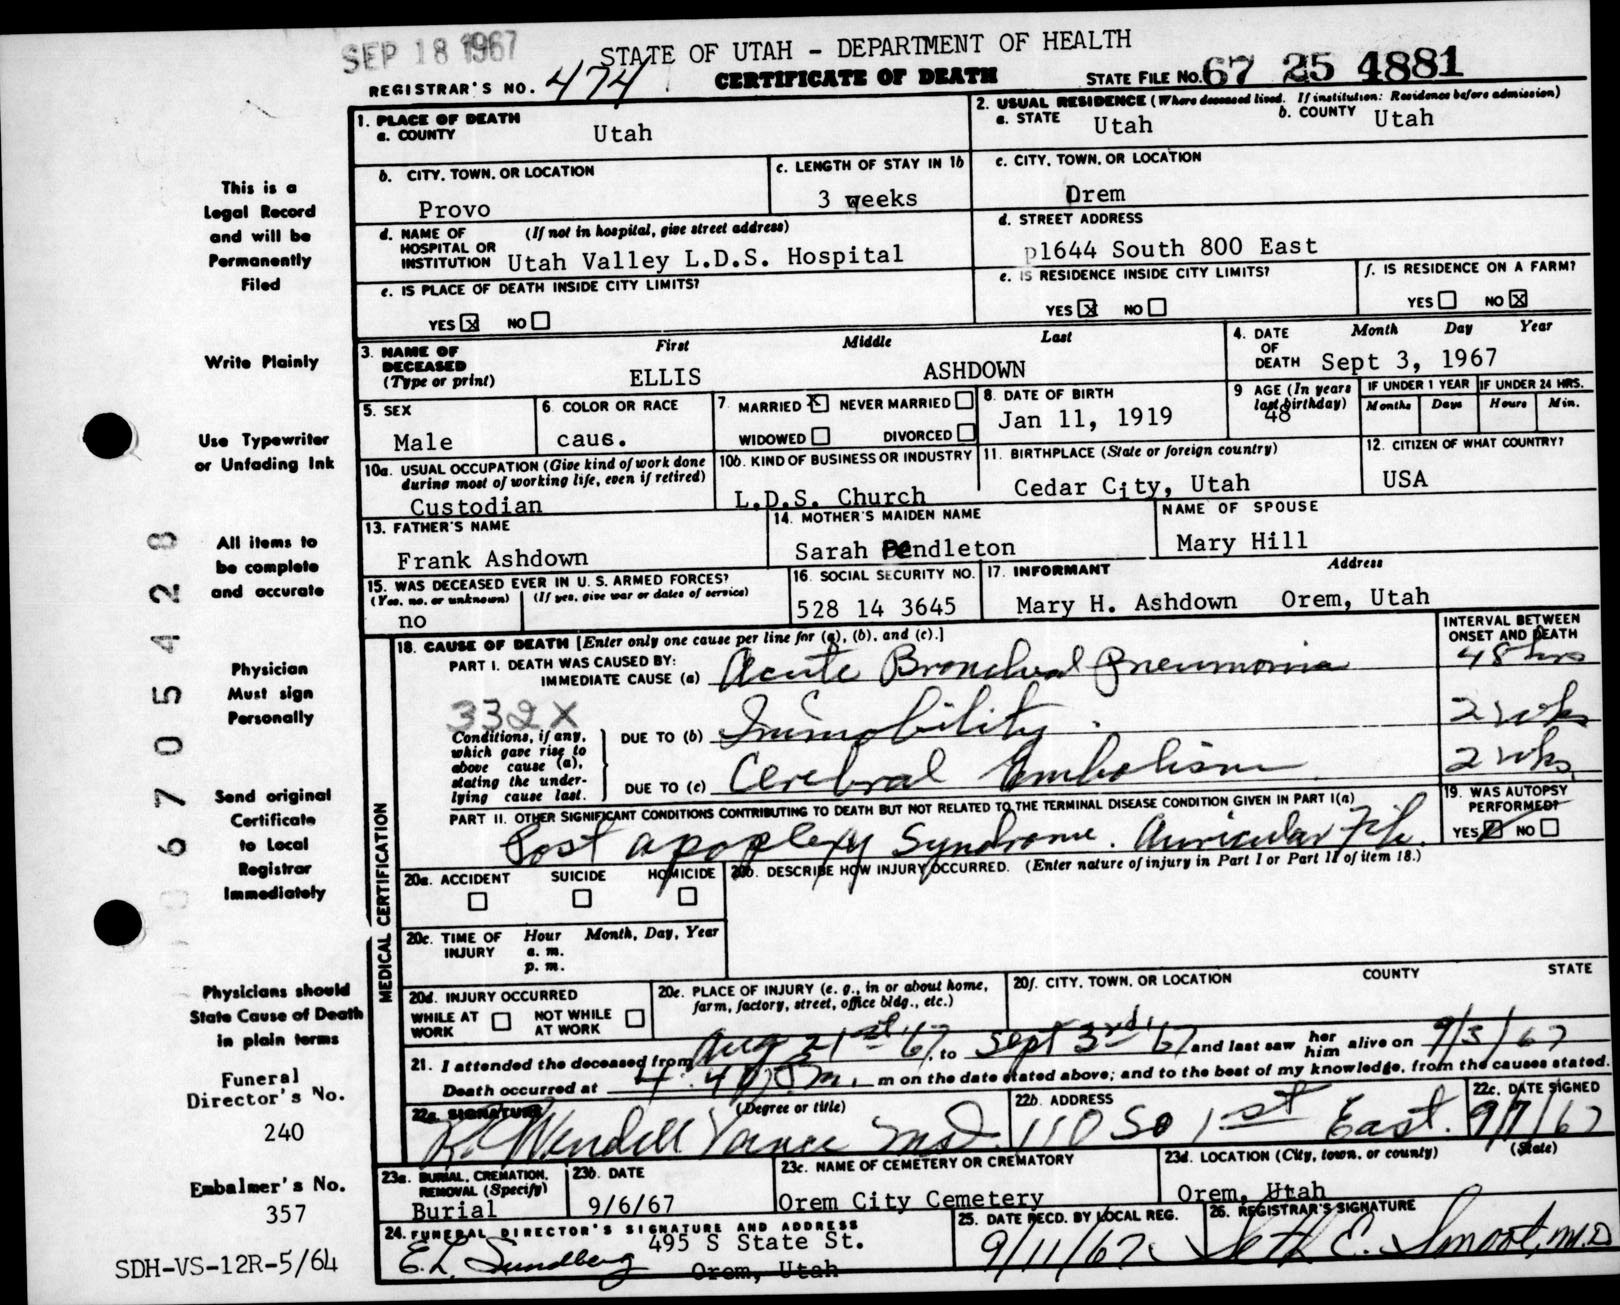 SEP 18 1967
STATE OF UTAH - DEPARTMENT OF HEALTH
REGISTRAR'S NO. 474
CERTIFICATE OF DEATH
STATE FILE NO. 67 25 4881
1. PLACE OF DEATH
a. COUNTY Utah
2. USUAL RESIDENCE (Where deceased lived. If institution: Residence before admission)
a. STATE Utah b. COUNTY Utah
b. CITY, TOWN, OR LOCATION
Provo
c. LENGTH OF STAY IN 1b
3 weeks
c. CITY, TOWN, OR LOCATION
Orem
d. NAME OF HOSPITAL OR INSTITUTION (If not in hospital, give street address)
Utah Valley L.D.S. Hospital
d. STREET ADDRESS
1644 South 800 East
e. IS PLACE OF DEATH INSIDE CITY LIMITS?
YES X NO
e. IS RESIDENCE INSIDE CITY LIMITS?
YES X NO
f. IS RESIDENCE ON A FARM?
YES NO X
3. NAME OF DECEASED (Type or print)
First Middle Last
ELLIS ASHDOWN
4. DATE OF DEATH Month Day Year
Sept 3, 1967
5. SEX
Male
6. COLOR OR RACE
caus.
7. MARRIED X NEVER MARRIED
WIDOWED DIVORCED
8. DATE OF BIRTH
Jan 11, 1919
9 AGE (In years last birthday)
48
IF UNDER 1 YEAR IF UNDER 24 HRS.
Months Days Hours Min.
10a. USUAL OCCUPATION (Give kind of work done during most of working life, even if retired)
Custodian
10b. KIND OF BUSINESS OR INDUSTRY
L.D.S. Church
11. BIRTHPLACE (State or foreign country)
Cedar City, Utah
12. CITIZEN OF WHAT COUNTRY?
USA
13. FATHER'S NAME
Frank Ashdown
14. MOTHER'S MAIDEN NAME
Sarah Pendleton
NAME OF SPOUSE
Mary Hill
15. WAS DECEASED EVER IN U. S. ARMED FORCES?
(Yes, no, or unknown) (If yes, give war or dates of service)
no
16. SOCIAL SECURITY NO.
528 14 3645
17. INFORMANT Address
Mary H. Ashdown Orem, Utah
MEDICAL CERTIFICATION
18. CAUSE OF DEATH [Enter only one cause per line for (a), (b), and (c).]
INTERVAL BETWEEN ONSET AND DEATH
PART I. DEATH WAS CAUSED BY:
IMMEDIATE CAUSE (a) Acute Bronchial Pneumonia 48 hrs
332X
Conditions, if any, which gave rise to above cause (a), stating the underlying cause last.
DUE TO (b) Immobility. 2 wks
DUE TO (c) Cerebral Embolism 2 wks
PART II. OTHER SIGNIFICANT CONDITIONS CONTRIBUTING TO DEATH BUT NOT RELATED TO THE TERMINAL DISEASE CONDITION GIVEN IN PART I(a)
Post apoplexy Syndrome. Auricular Fib.
19. WAS AUTOPSY PERFORMED?
YES NO
20a. ACCIDENT SUICIDE HOMICIDE
20b. DESCRIBE HOW INJURY OCCURRED. (Enter nature of injury in Part I or Part II of item 18.)
20c. TIME OF INJURY Hour Month, Day, Year
a. m.
p. m.
20d. INJURY OCCURRED
WHILE AT WORK NOT WHILE AT WORK
20e. PLACE OF INJURY (e. g., in or about home, farm, factory, street, office bldg., etc.)
20f. CITY, TOWN, OR LOCATION COUNTY STATE
21. I attended the deceased from Aug 21st '67, to Sept 3rd '67 and last saw her him alive on 9/3/67
Death occurred at 4:40 m on the date stated above; and to the best of my knowledge, from the causes stated.
22a. SIGNATURE (Degree or title)
R. Wendell Vance M.D.
22b. ADDRESS
110 So 1st East.
22c. DATE SIGNED
9/7/67
23a. BURIAL, CREMATION, REMOVAL (Specify)
Burial
23b. DATE
9/6/67
23c. NAME OF CEMETERY OR CREMATORY
Orem City Cemetery
23d. LOCATION (City, town, or county) (State)
Orem, Utah
24. FUNERAL DIRECTOR'S SIGNATURE AND ADDRESS
E.L. Sundberg
495 S State St.
Orem, Utah
25. DATE RECD. BY LOCAL REG.
9/11/67
26. REGISTRAR'S SIGNATURE
Seth E. Smoot, M.D
This is a
Legal Record
and will be
Permanently
Filed
Write Plainly
Use Typewriter
or Unfading Ink
All items to
be complete
and accurate
Physician
Must sign
Personally
Send original
Certificate
to Local
Registrar
Immediately
Physicians should
State Cause of Death
in plain terms
Funeral
Director's No.
240
Embalmer's No.
357
SDH-VS-12R-5/64
06705428